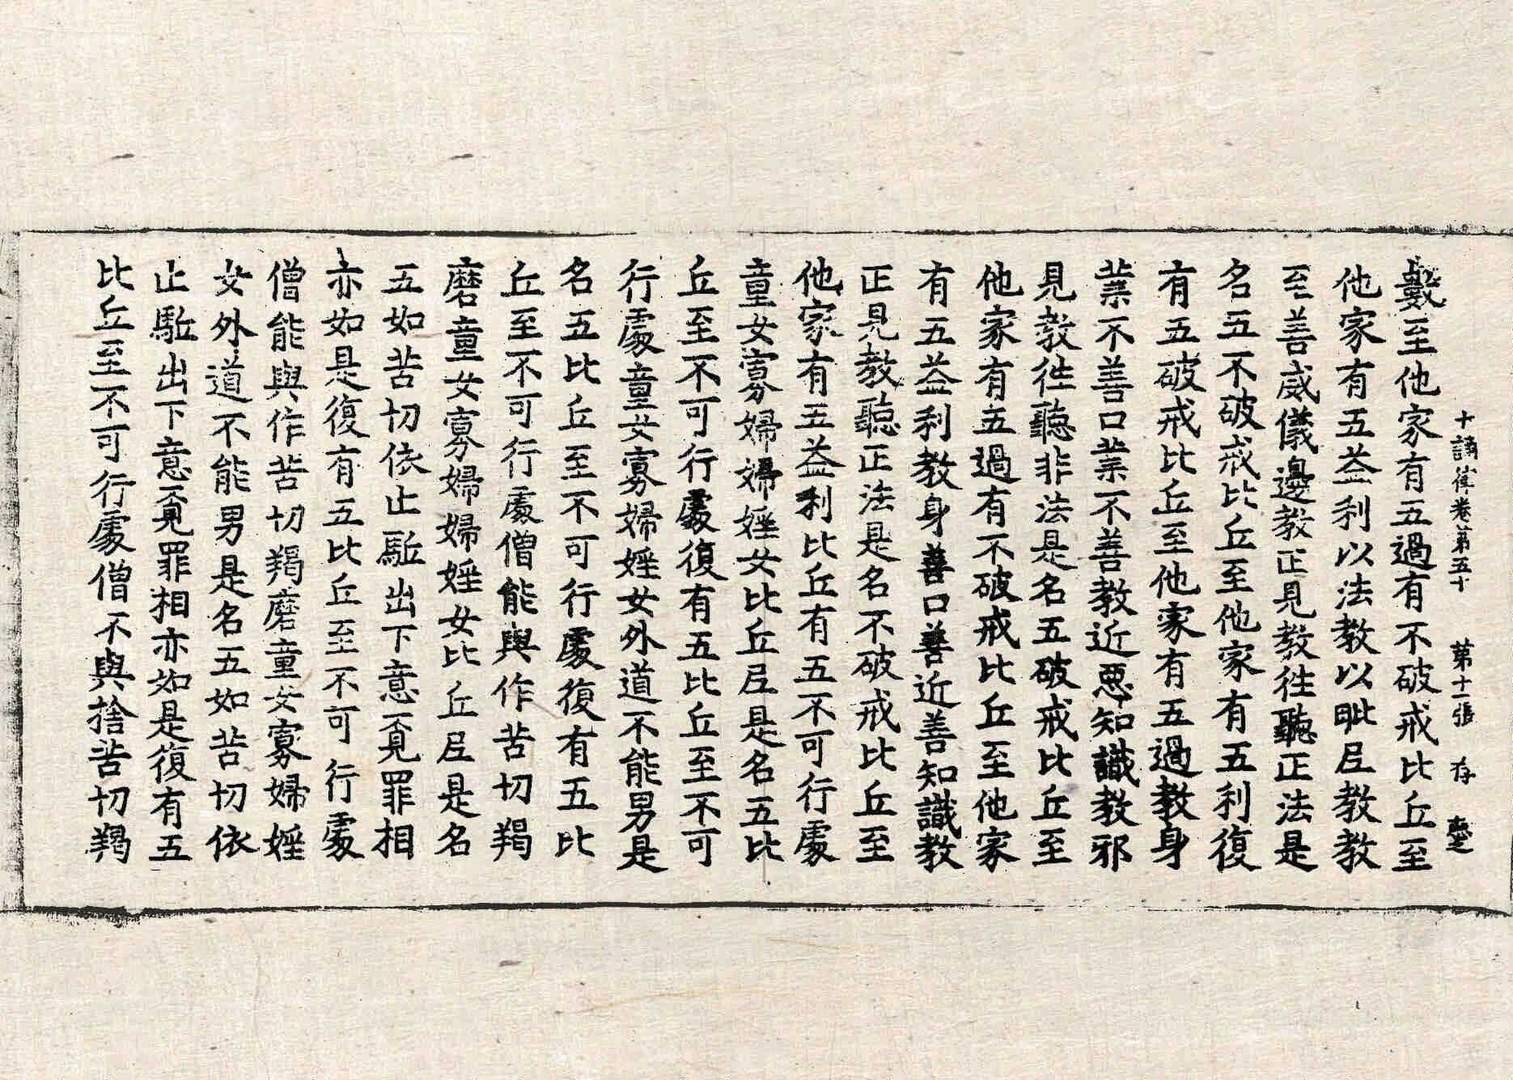 十誦律卷第五十　第十一張　存
數至他家有五過有不破戒比丘至
他家有五益利以法教以毗尼教教
至善威儀邊教正見教往聽正法是
名五不破戒比丘至他家有五利復
有五破戒比丘至他家有五過教身
業不善口業不善教近惡知識教邪
見教往聽非法是名五破戒比丘至
他家有五過有不破戒比丘至他家
有五益利教身善口善近善知識教
正見教聽正法是名不破戒比丘至
他家有五益利比丘有五不可行處
童女寡婦婦婬女比丘尼是名五比
丘至不可行處復有五比丘至不可
行處童女寡婦婬女外道不能男是
名五比丘至不可行處復有五比
丘至不可行處僧能與作苦切羯
磨童女寡婦婦婬女比丘尼是名
五如苦切依止駈出下意覔罪相
亦如是復有五比丘至不可行處
僧能與作苦切羯磨童女寡婦婬
女外道不能男是名五如苦切依
止駈出下意覔罪相亦如是復有五
比丘至不可行處僧不與捨苦切羯